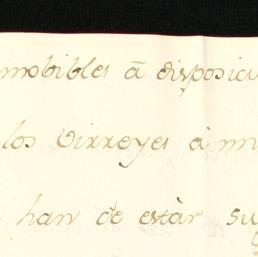 mobibles à disposicio
los Virreyes à mi
han de estàr su